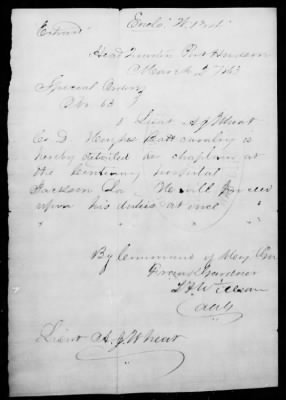 Extract
Head Quarters Port Hudson
March 2 / 63
Special Orders
No 63
Lieut A J Wheat
Co D. Hughes Batt cavalry is
hereby detailed as chaplain at
the Centenary hospital
Jackson La He will proceed
upon his duties at once
By Command of Maj Gen
Frank Gardner
T F Willson
AAG
Lieut A. J. Wheat